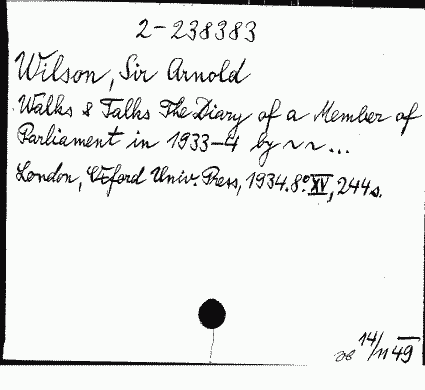 2-238383
Wilson, Sir Arnold
Walks & Talks The Diary of a Member of
Parliament in 1933-4 by ~ ~ ...
London, Oxford Univ. Press, 1934. 8° XV, 244 s.
14/11 49